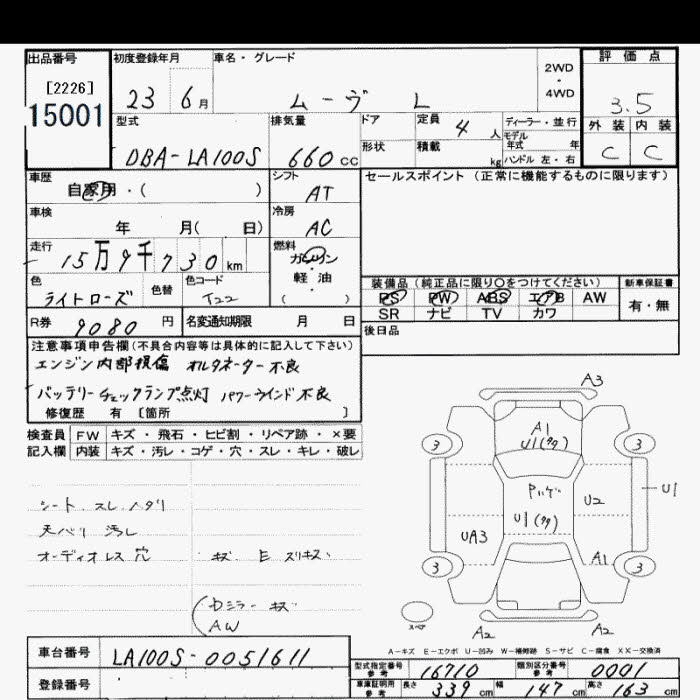 出品番号 初度登録年月 車名・グレード 2WD ・ 4WD 評価点
[2226]
15001
23 6月 ムーヴ L 3.5
型式 排気量 ドア 定員 4人 ディーラー・並行 外装 内装
DBA-LA100S 660cc 形状 積載 kg モデル年式 年 ハンドル 左・右 C C
車歴 自家用・( ) シフト AT セールスポイント(正常に機能するものに限ります)
車検 年 月( 日) 冷房 AC
走行 15万9千730km 燃料 ガソリン・軽油 ( )
色 ライトローズ 色替 色コード T22
装備品(純正品に限り○をつけてください) 新車保証書
PS PW ABS エアB AW 有・無
SR ナビ TV カワ
R券 9080円 名変通知期限 月 日 後日品
注意事項申告欄(不具合内容等は具体的に記入して下さい)
エンジン内部損傷 オルタネーター不良
バッテリーチェックランプ点灯 パワーウインド不良
修復歴 有 [箇所 ]
検査員 FW キズ・飛石・ヒビ割・リペア跡・×要
記入欄 内装 キズ・汚レ・コゲ・穴・スレ・キレ・破レ
シート スレ ヘタリ
天バリ 汚レ
オーディオレス 穴 キズ E スリキズ
Dミラー キズ
AW
A3
A1
U1(タタ)
3 3
U1
U2
U1(タタ)
UA3
A1
3 3
スペア
A2 A2
A-キズ E-エクボ U-凹み W-補修跡 S-サビ C-腐食 XX-交換済
車台番号 LA100S-0051611
登録番号
型式指定番号 参考 16710 類別区分番号 参考 0001
車庫証明用 参考 長さ 339cm 幅 147cm 高さ 163cm